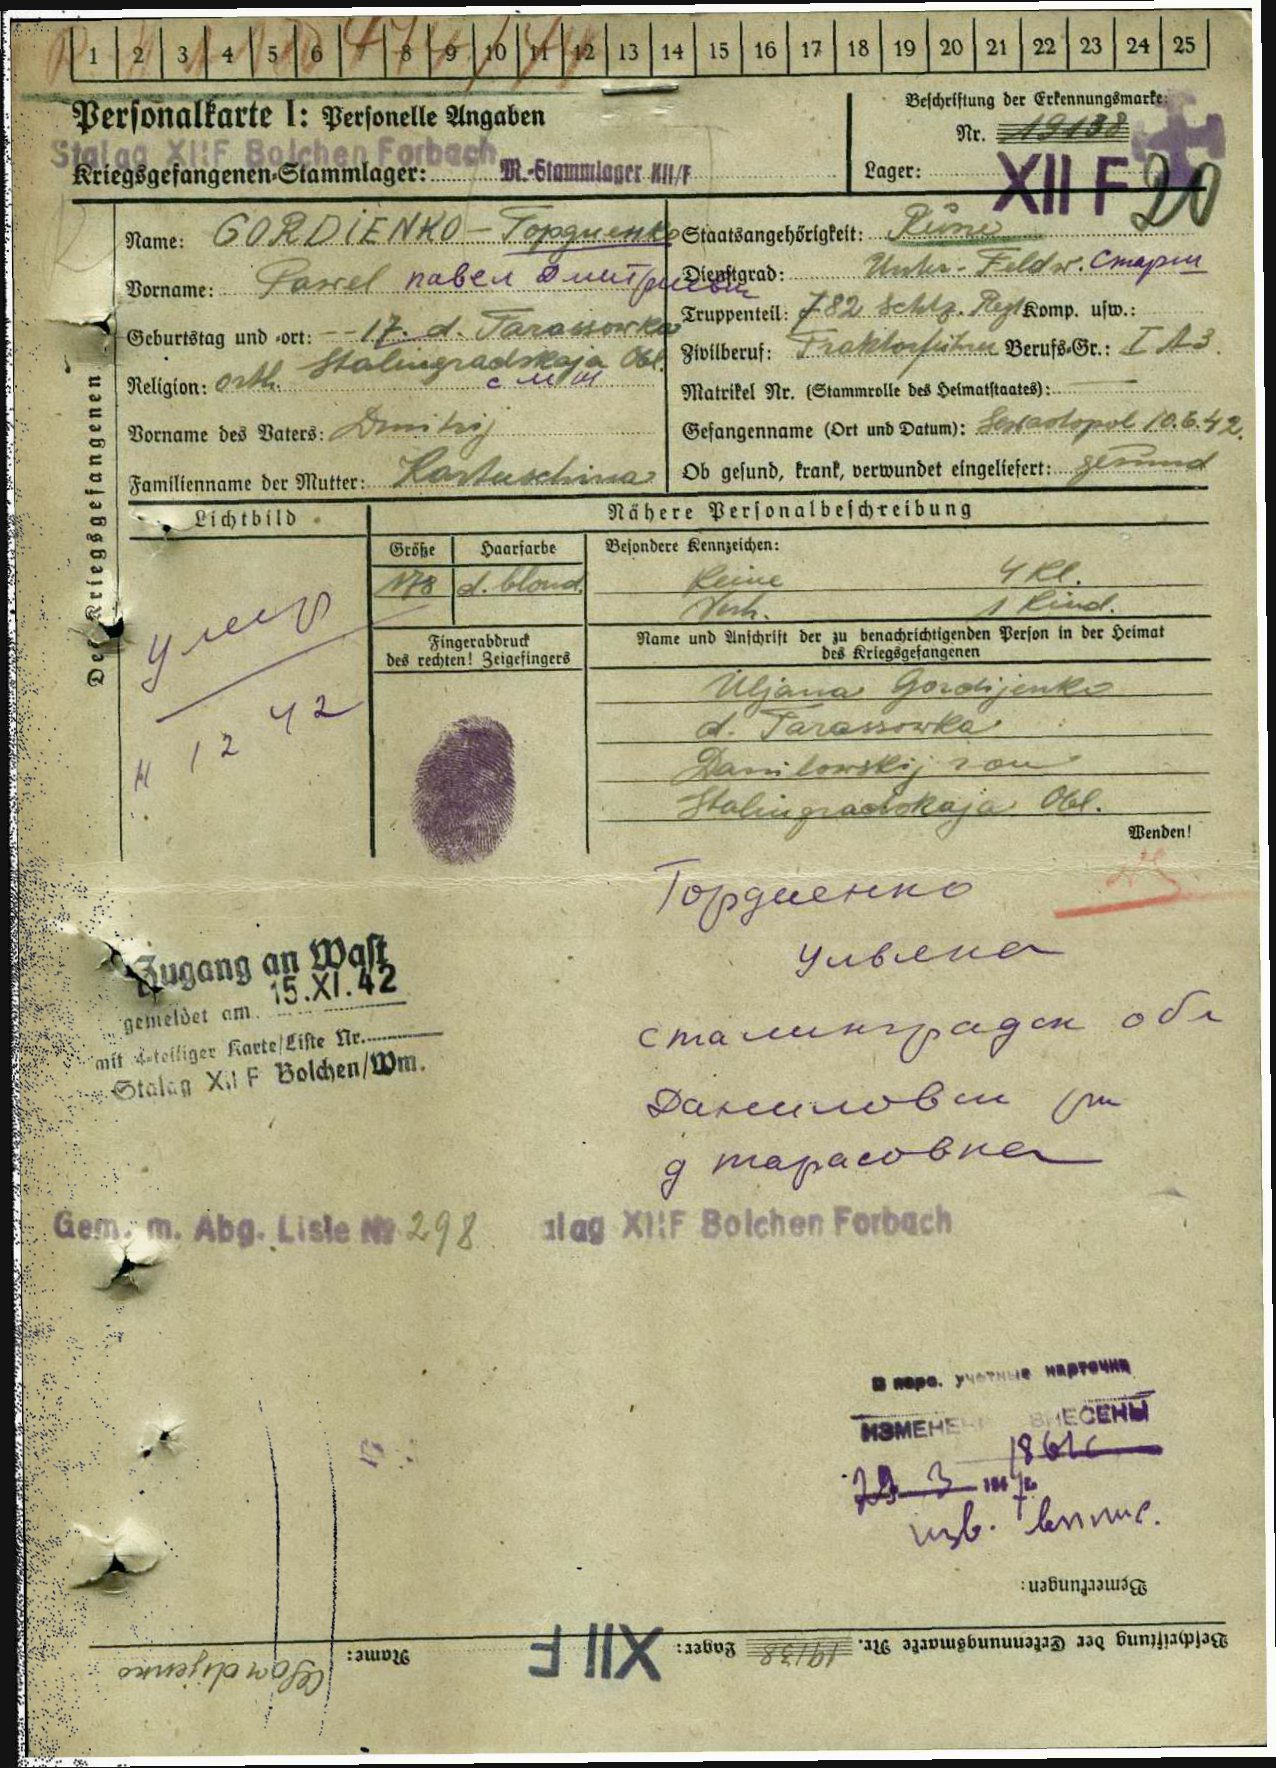 1 2 3 4 5 6 8 9 10 11 12 13 14 15 16 17 18 19 20 21 22 23 24 25
Personalkarte I: Personelle Angaben
Stalag XIIF Bolchen Forbach
Kriegsgefangenen-Stammlager: M.-Stammlager XII/F
Beschriftung der Erkennungsmarke:
Nr. 19138
Lager: XII F 20
Des Kriegsgefangenen
Name: GORDIENKO - Гордиенко
Vorname: Pawel павел Дмитриевич
Geburtstag und -ort: -- 17. d. Tarassowka
Stalingradskaja Obl.
Religion: orth.
Vorname des Vaters: Dmitrij
Familienname der Mutter: Kartuschina
Staatsangehörigkeit:
Dienstgrad: Unter-Feldw. Старш
Truppenteil: 782 Schtz. Regt Komp. usw.:
Zivilberuf: Traktorführer Berufs-Gr.: I A 3
Matrikel Nr. (Stammrolle des Heimatstaates): —
Gefangenname (Ort und Datum): Sewastopol 10.6.42.
Ob gesund, krank, verwundet eingeliefert: gesund
Lichtbild
Nähere Personalbeschreibung
Größe Haarfarbe
178 d. blond.
Besondere Kennzeichen:
Keine 4 Kl.
Verh. 1 Kind.
умер
12 42
Fingerabdruck
des rechten! Zeigefingers
Name und Anschrift der zu benachrichtigenden Person in der Heimat
des Kriegsgefangenen
Uljana Gordijenko
d. Tarassowka
Danilowskij ron
Stalingradskaja Obl.
Wenden!
Гордиенко
Ульяна
Сталинградск обл
Даниловск рн
д тарасовка
Zugang an Wast
gemeldet am 15.XI.42
mit 4-teiliger Karte/Liste Nr.
Stalag XII F Bolchen/Wm.
Gem. m. Abg. Liste № 298 alag XIIF Bolchen Forbach
В перс. учетные карточки
ИЗМЕНЕН ВНЕСЕНЫ
Bemerkungen:
Beschriftung der Erkennungsmarke Nr. 19138 Lager: XII F Name: Gordijenko